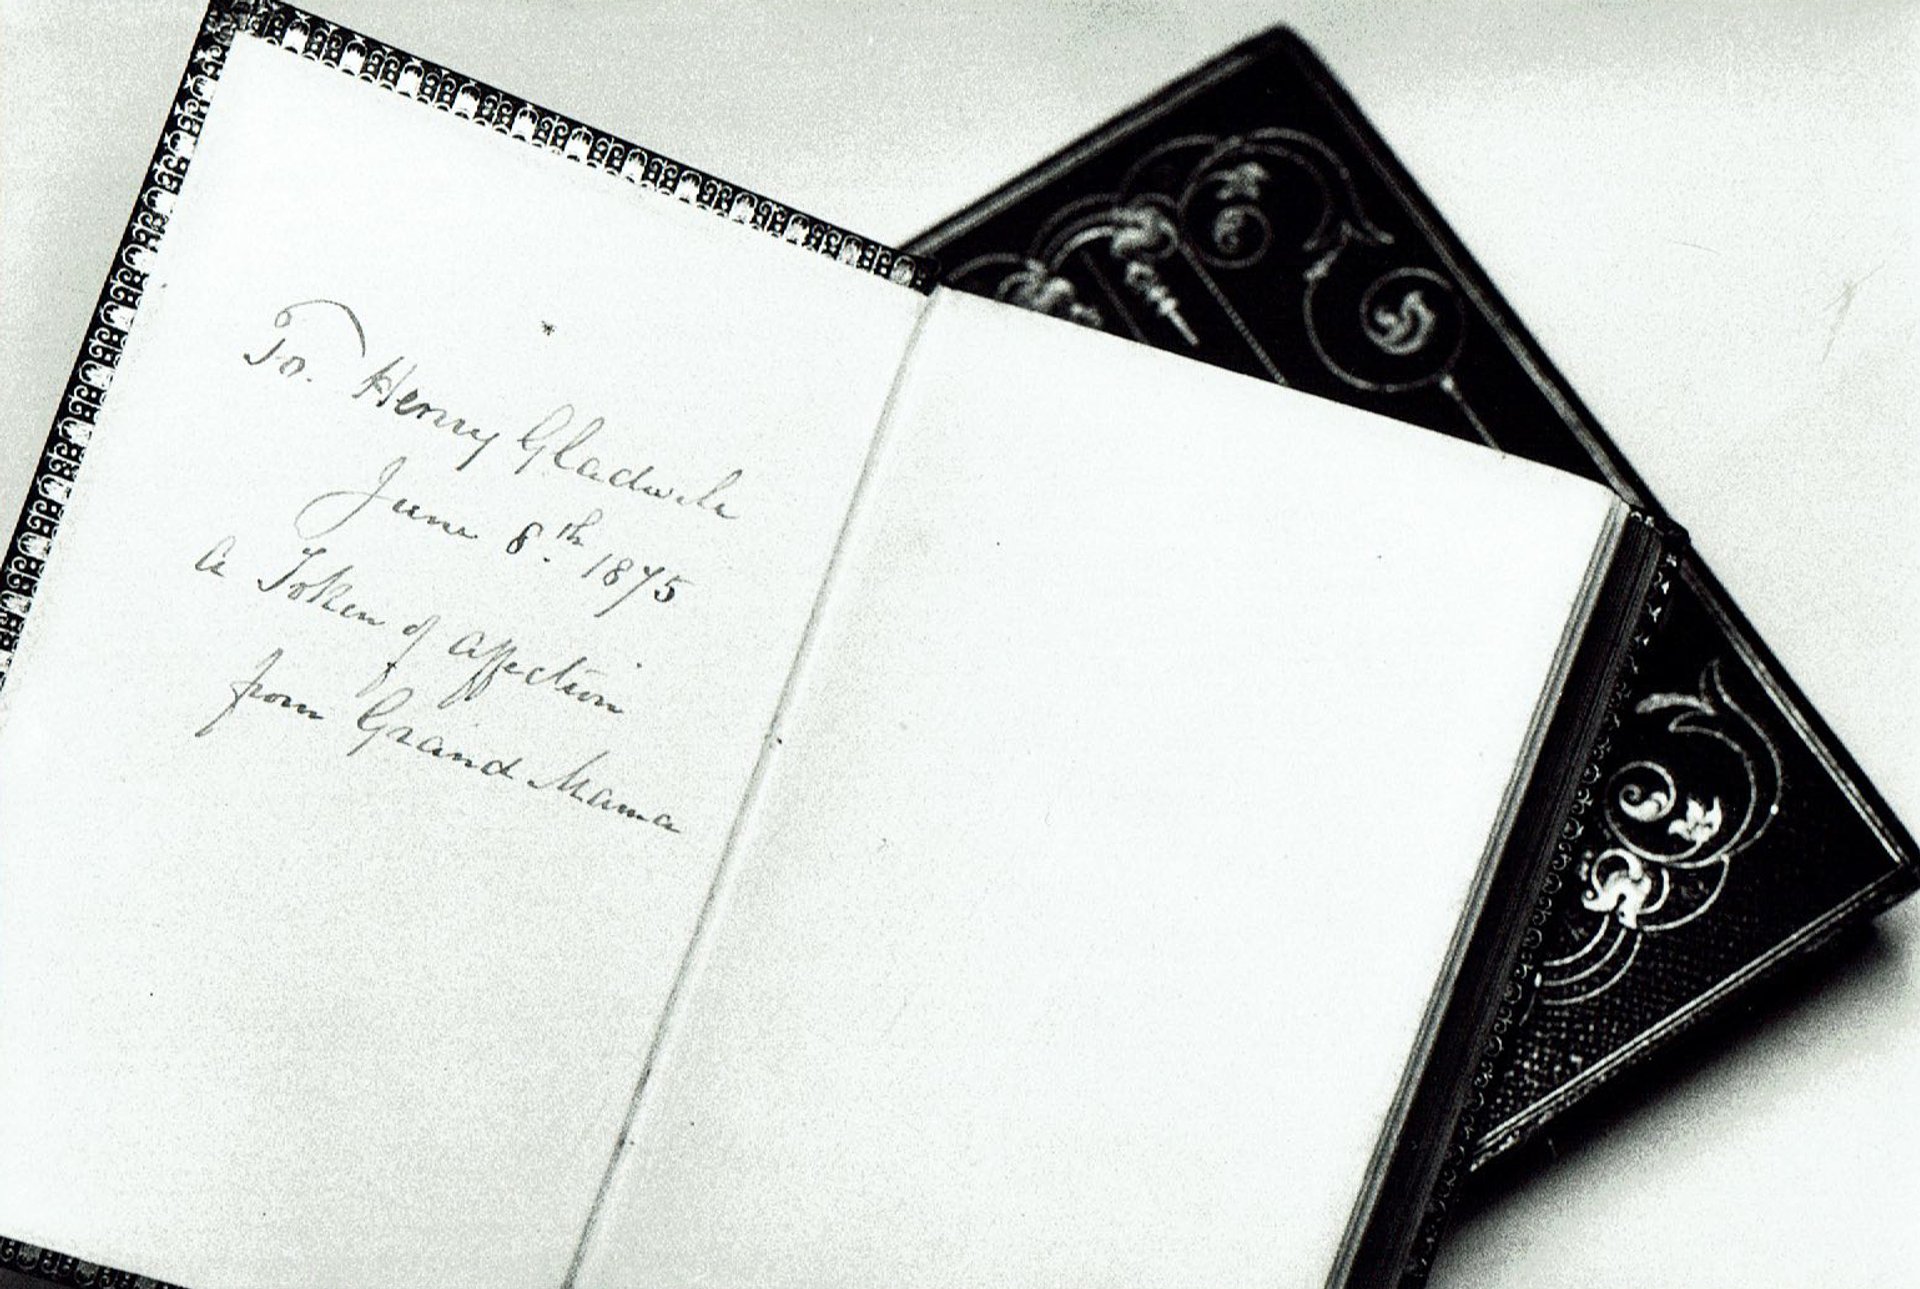 To. Henry Gladwell
June 8.th 1875
A Token of affection
from Grand Mama